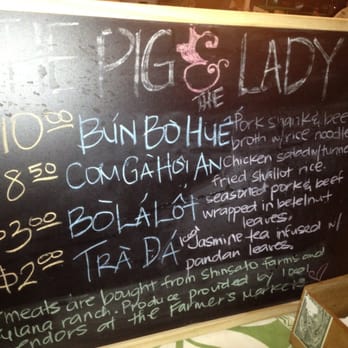 THE PIG & THE LADY
10.00 BÚN BÒ HUẾ Pork shanks, beef
broth w/ rice noodle
8.50 CƠM GÀ HỘI AN chicken salad w/ turme
fried shallot rice.
$3.00 BÒ LÁ LỐT seasoned pork & beef
wrapped in betelnut
leaves.
$2.00 TRÀ DÁ iced Jasmine tea infused w/
pandan leaves.
meats are bought from Shinsato farms and
ulana ranch. Produce provided by local
endors at the Farmer's Market